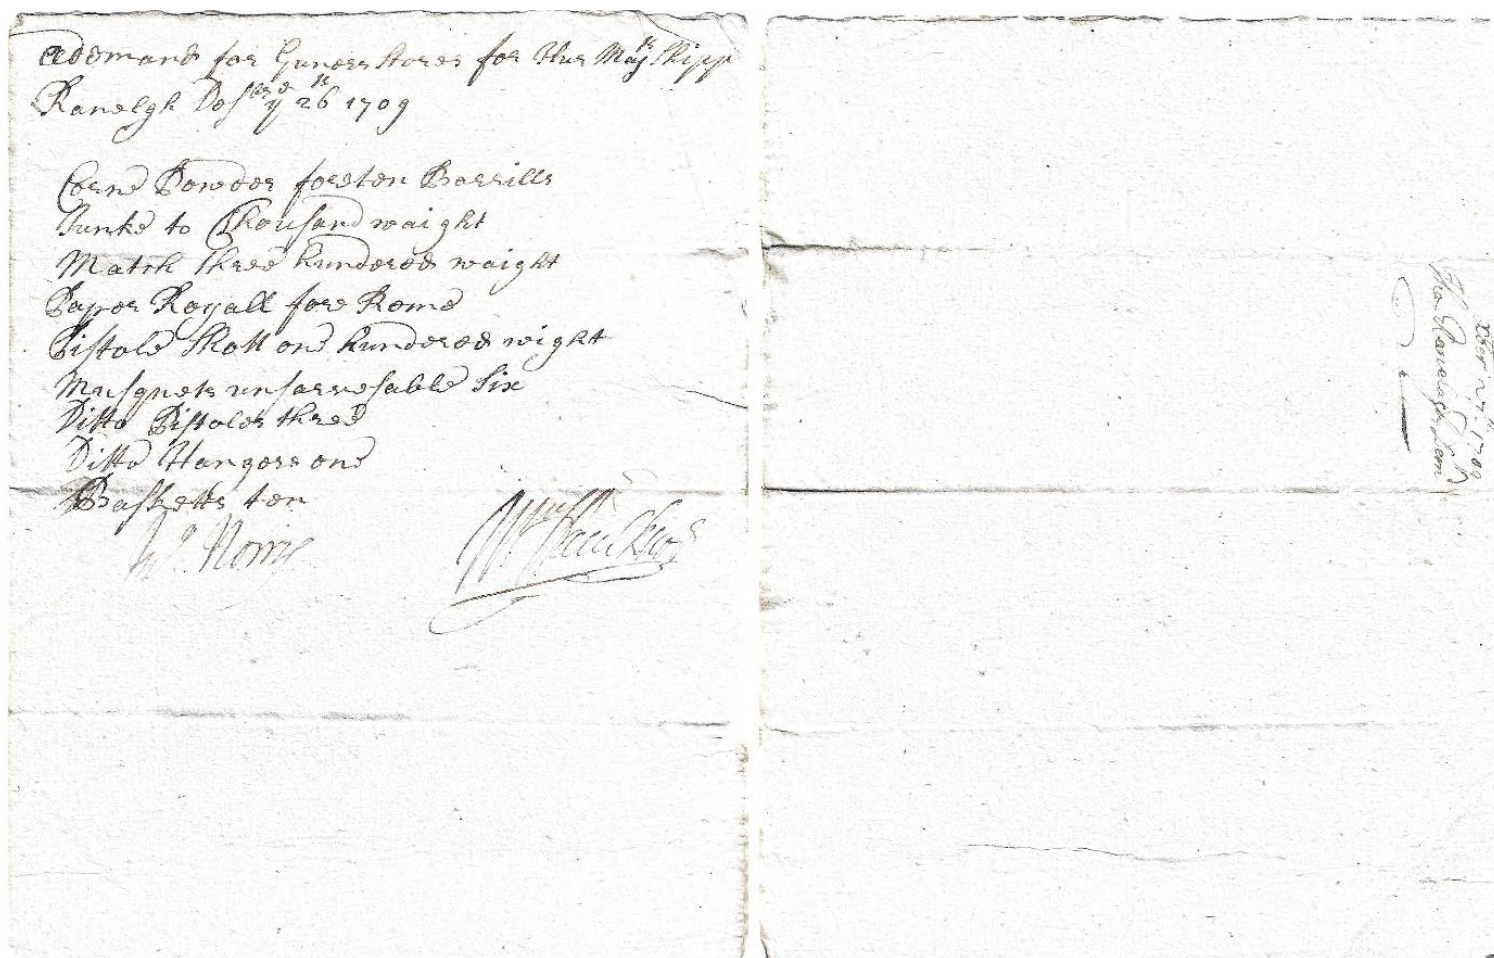 A demand for Guners Stores for Hur Maj.ts Shipp
Ranelgh Des.br ye 26th 1709
Corne Powder foreten Barrills
Junke to Thousand waight
Match three hundered waight
Paper Royall fore Rome
Pistole Shott one hundered wight
Musquets unsarvesable Six
Ditto Pistoles three
Ditto Hangers one
Basketts ten
Norris
Xber 27th 1709
The Ranelagh's Dem